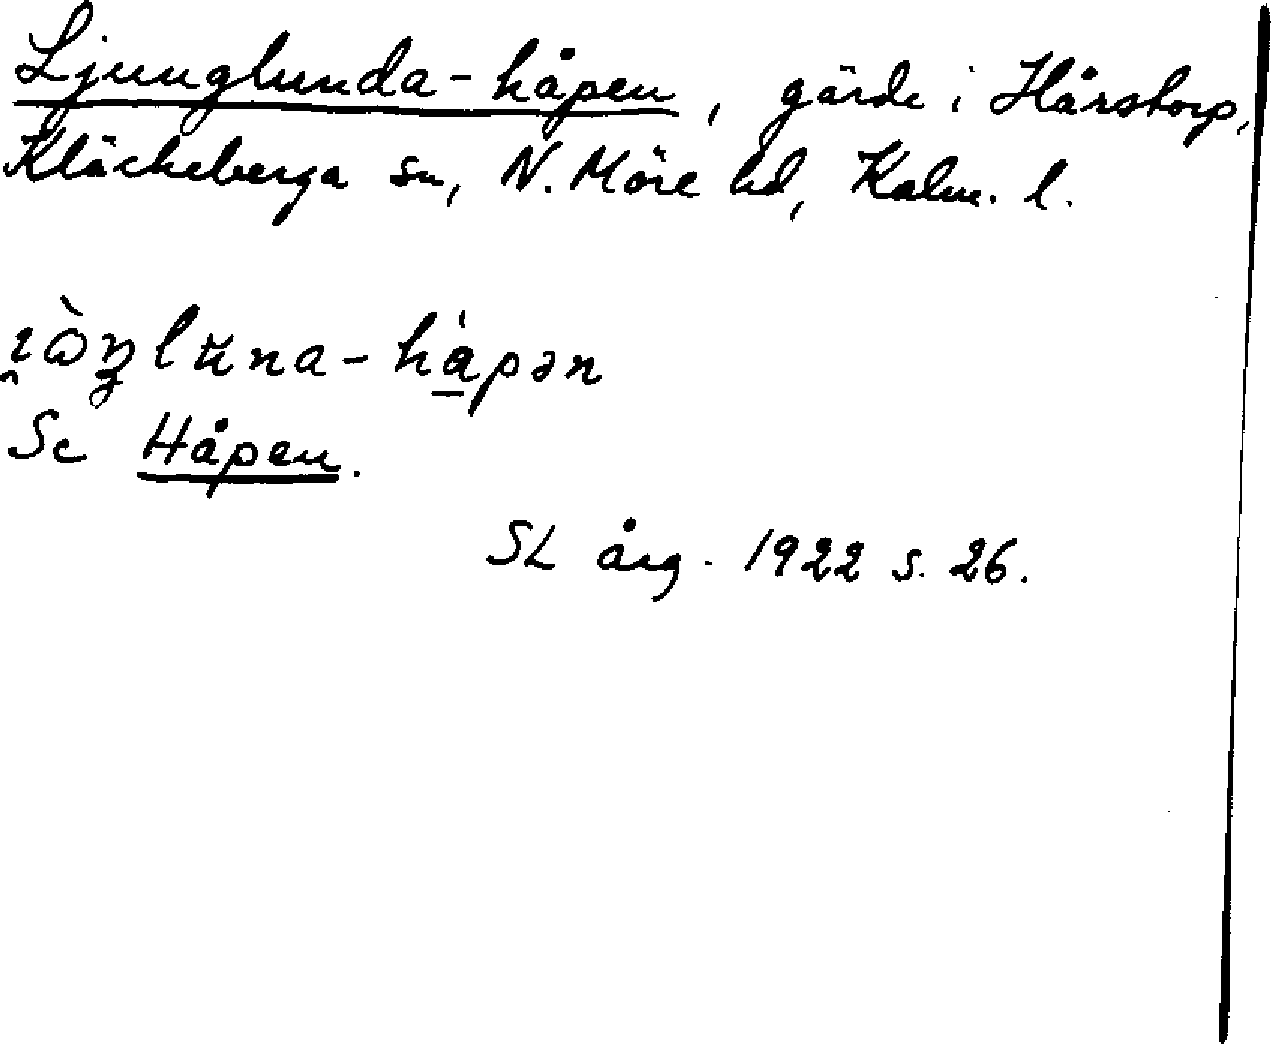 Ljunglunda-håpen, gärde i Hårstorp,
Kläckeberga sn, N. Möre hd, Kalm. l.
ı̯ὼŋlʉna-hȧ̱pən
Se Håpen.
SL årg. 1922 s. 26.